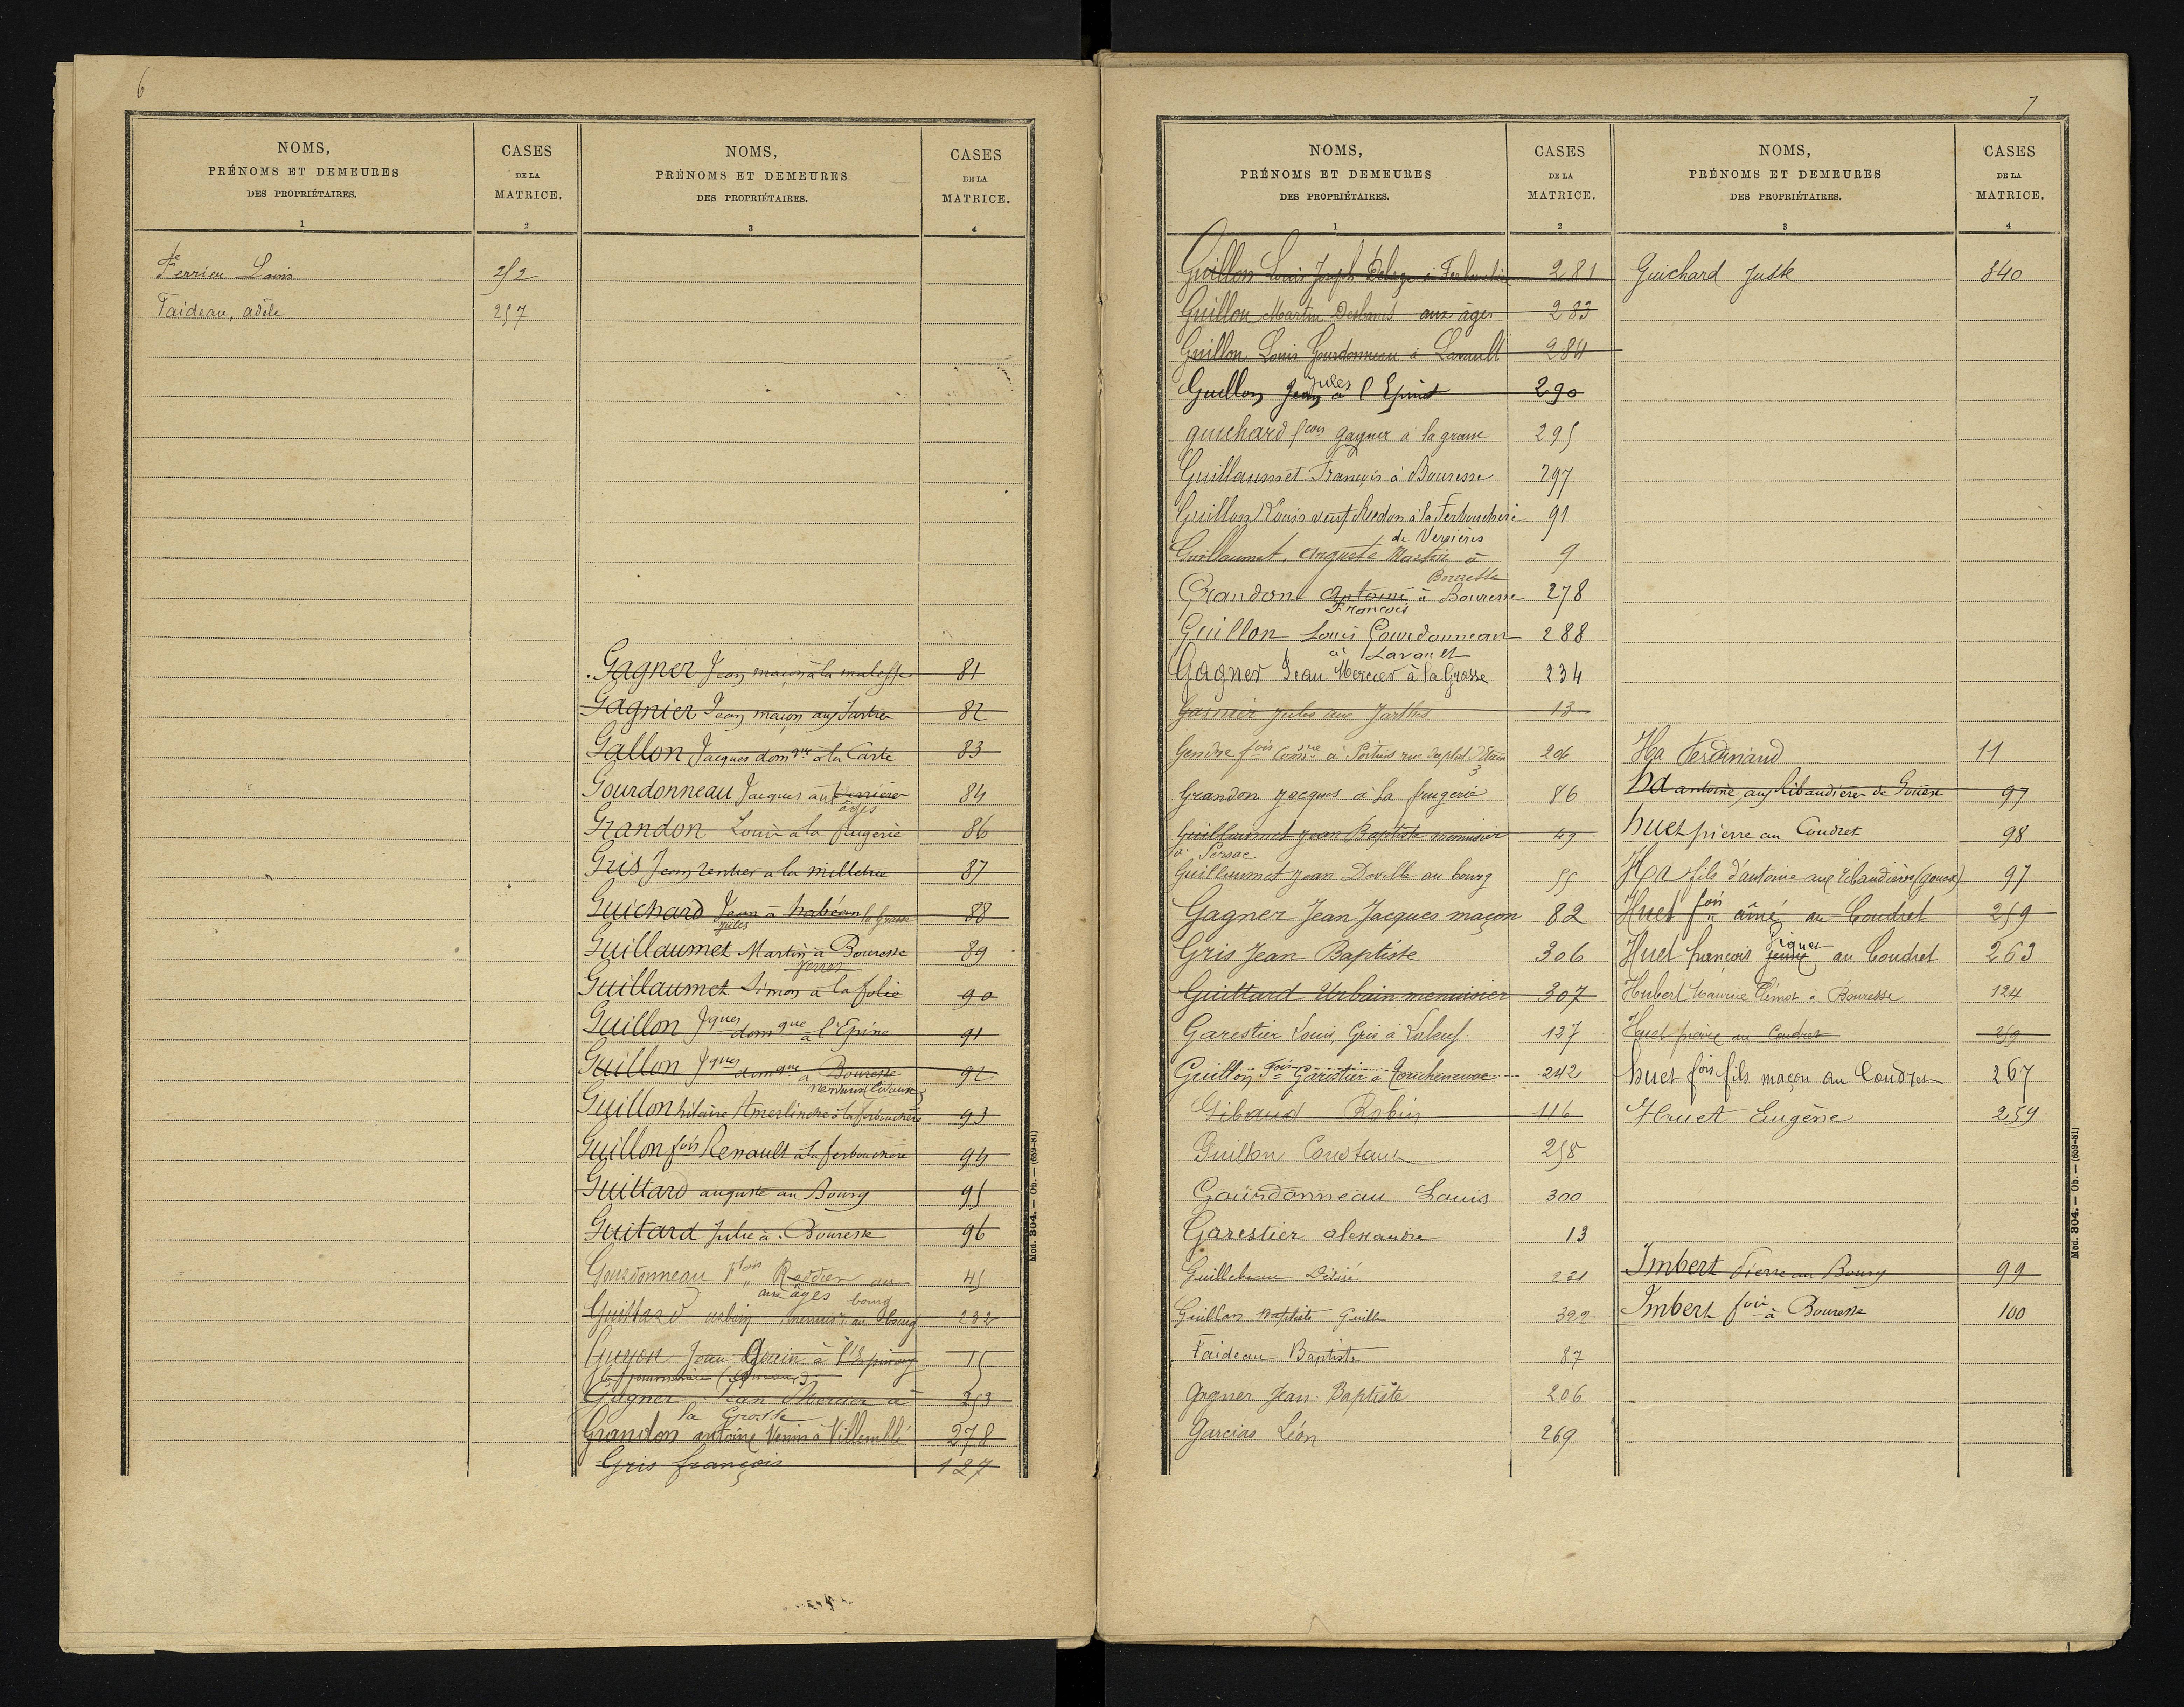 6
NOMS,
PRÉNOMS ET DEMEURES
DES PROPRIÉTAIRES.
1
CASES
DE LA
MATRICE.
2
NOMS,
PRÉNOMS ET DEMEURES
DES PROPRIÉTAIRES.
3
CASES
DE LA
MATRICE.
4
Ferrieu Louis 252
Faideau, adèle 257
Gagner Jean maçon à la malesse 81
Gagnier Jean maçon aux Jartres 82
Gallon Jacques domque à la Carte 83
Gourdonneau Jacques aux ferrières 84
âges
Grandon Louis à la frugerie 86
Gris Jean rentier à la milletrie 87
Guichard Jean à habéan la Grasse 88
Jules
Guillaumet Martin à Bouresse 89
Guillaumet Simon à la folie 90
Guillon Jques domque à l'Epine 91
Guillon Jques domque à Bouresse 92
Guillon hilaire Amerlinche à la ferbouchère 93
Guillon fois Renault à la ferbouchère 94
Guittard auguste au Bourg 95
Guitard Julie à Bouresse 96
Gourdonneau Roddier au 45
aux âges bourg
Guittard urbin menuisr au bourg 232
Guyon Jean à l'Epinoux 15
Gagner Jean Mercier à 253
la Grosse
Grandon antoine Venin à Villemblé 278
Gris françois 127
Mod. 304. — Ob. — (659-81)
7
NOMS,
PRÉNOMS ET DEMEURES
DES PROPRIÉTAIRES.
1
CASES
DE LA
MATRICE.
2
NOMS,
PRÉNOMS ET DEMEURES
DES PROPRIÉTAIRES.
3
CASES
DE LA
MATRICE.
4
Guillon Louis Joseph à Ferbouchère 281
Guillon Martin aux âges 283
Guillon Louis Gourdonneau à Lavault 284
Jules
Guillon Jean à l'Epine 290
guichard fcois gagner à la grasse 295
Guillaumet François à Bouresse 297
Guillon Louis veuf Redon à la Ferbouchère 91
de Verrières
Guillaumet, auguste Martin à 9
Bouresse
Grandon Antoine à Bouresse 278
François
Guillon Louis Gourdonneau 288
à Lavault
Gagner Jean Mercier à la Grosse 234
Gasnier Jules aux Jarthes 13
Gendre fois à Poitiers rue 206
3
Grandon Jacques à la frugerie 86
Guillaumet Jean Baptiste menuisier 49
à Persac
Guillaumet Jean Deville au bourg 55
Gagner Jean Jacques maçon 82
Gris Jean Baptiste 306
Guittard Urbain menuisier 307
Garestier Louis, Gris à 127
Guillon Fois Garestier à 242
Gibaud Robin 116
Guillon Constant 258
Gourdonneau Louis 300
Garestier alexandre 13
Guillebeau Désiré 221
Guillon Baptiste 322
Faideau Baptiste 87
Gagner Jean-Baptiste 206
Garcias Léon 269
Guichard Juste 340
Ha Ferdinand 11
ha antoine, aux Ribaudières de Gouex 97
huet pierre au Coudret 98
Ha fils d'antoine aux ribaudières (gouex) 97
Huet fois aîné au Coudret 259
Huet françois jeune au Coudret 263
Hubert Maurice Clémot à Bouresse 124
Huet pierre au Coudret 259
huet fois fils maçon au Coudret 267
Hauet Eugène 259
Imbert Pierre au Bourg 99
Imbert fois à Bouresse 100
Mod. 304. — Ob. — (659-81)